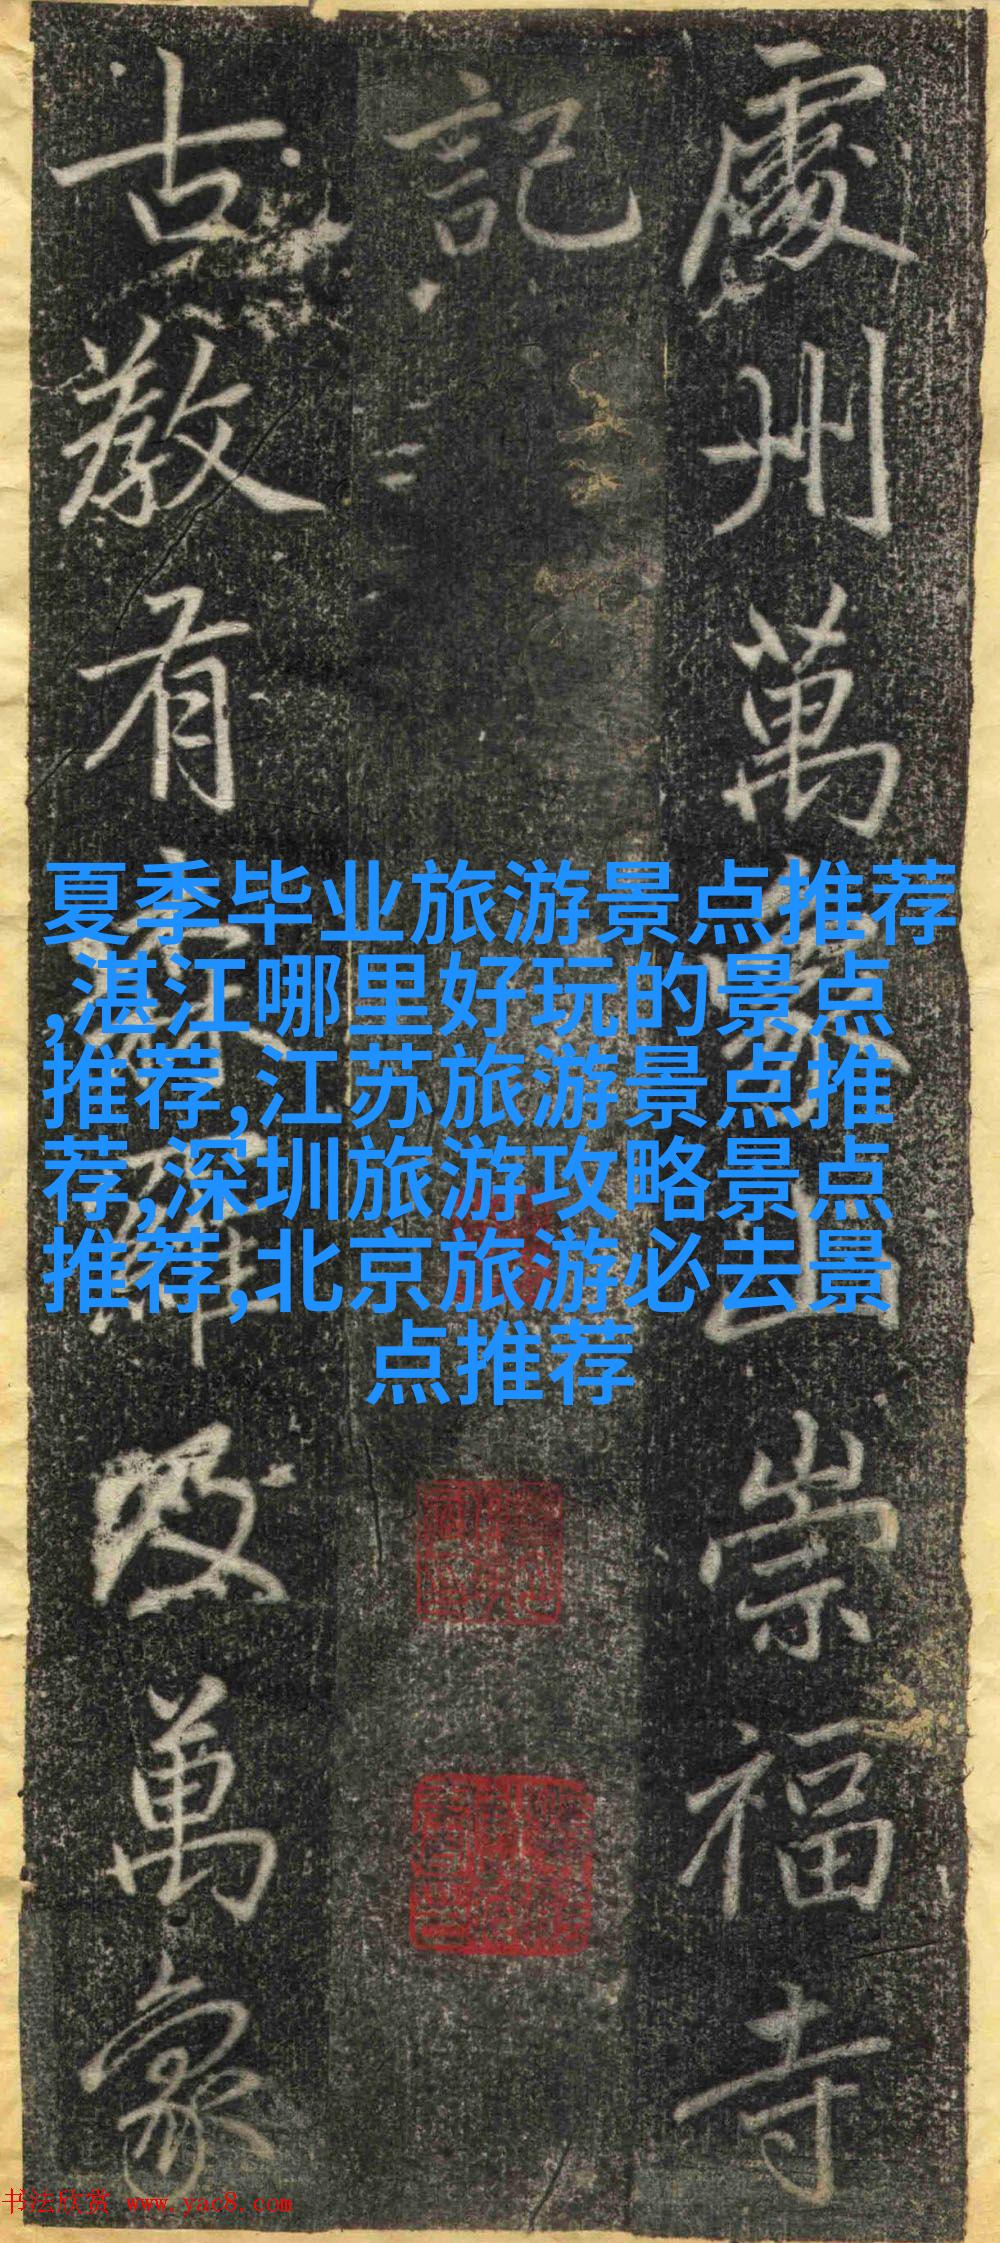 處州萬象山崇福寺
記
古教有
及萬象
夏季毕业旅游景点推荐
,湛江哪里好玩的景点
推荐,江苏旅游景点推
荐,深圳旅游攻略景点
推荐,北京旅游必去景
点推荐
书法欣赏 www.yac8.com